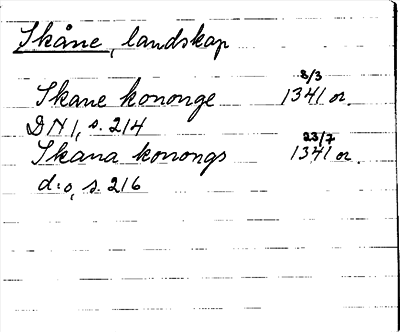 Skåne, landskap
8/3
Skane kononge 1341 or.
DN 1, s. 214
23/7
Skana konongs 1341 or.
d:o, s. 216